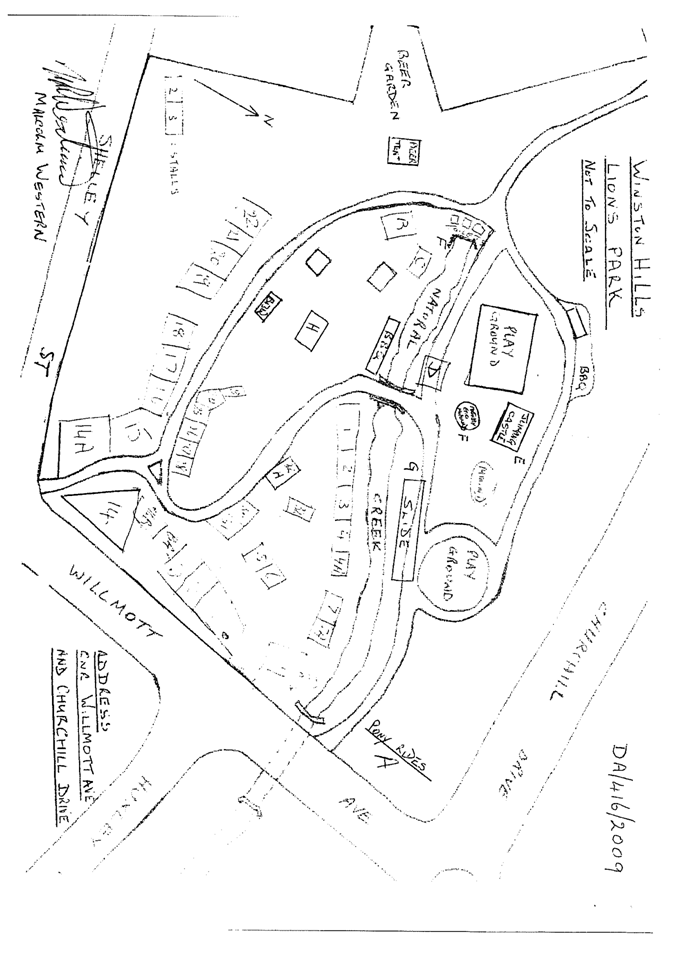 WINSTON HILLS
LIONS PARK
NOT TO SCALE
DA/416/2009
BEER
GARDEN
BEER
TENT
N
1 2 3 : STALLS
SHELLEY
ST
MALCOLM WESTERN
B
C
F
NATURAL
CREEK
BBQ
PLAY
GROUND
D
JUMPING
CASTLE
E
F
MOUND
G
SLIDE
PLAY
GROUND
H
H
22
21
20
19
18
17
16
15
14A
14
1
2
3
4
4A
7
PONY RIDES
A
WILLMOTT
AVE
CHURCHILL
DRIVE
HUXLEY
ADDRESS
CNR WILLMOTT AVE
AND CHURCHILL DRIVE